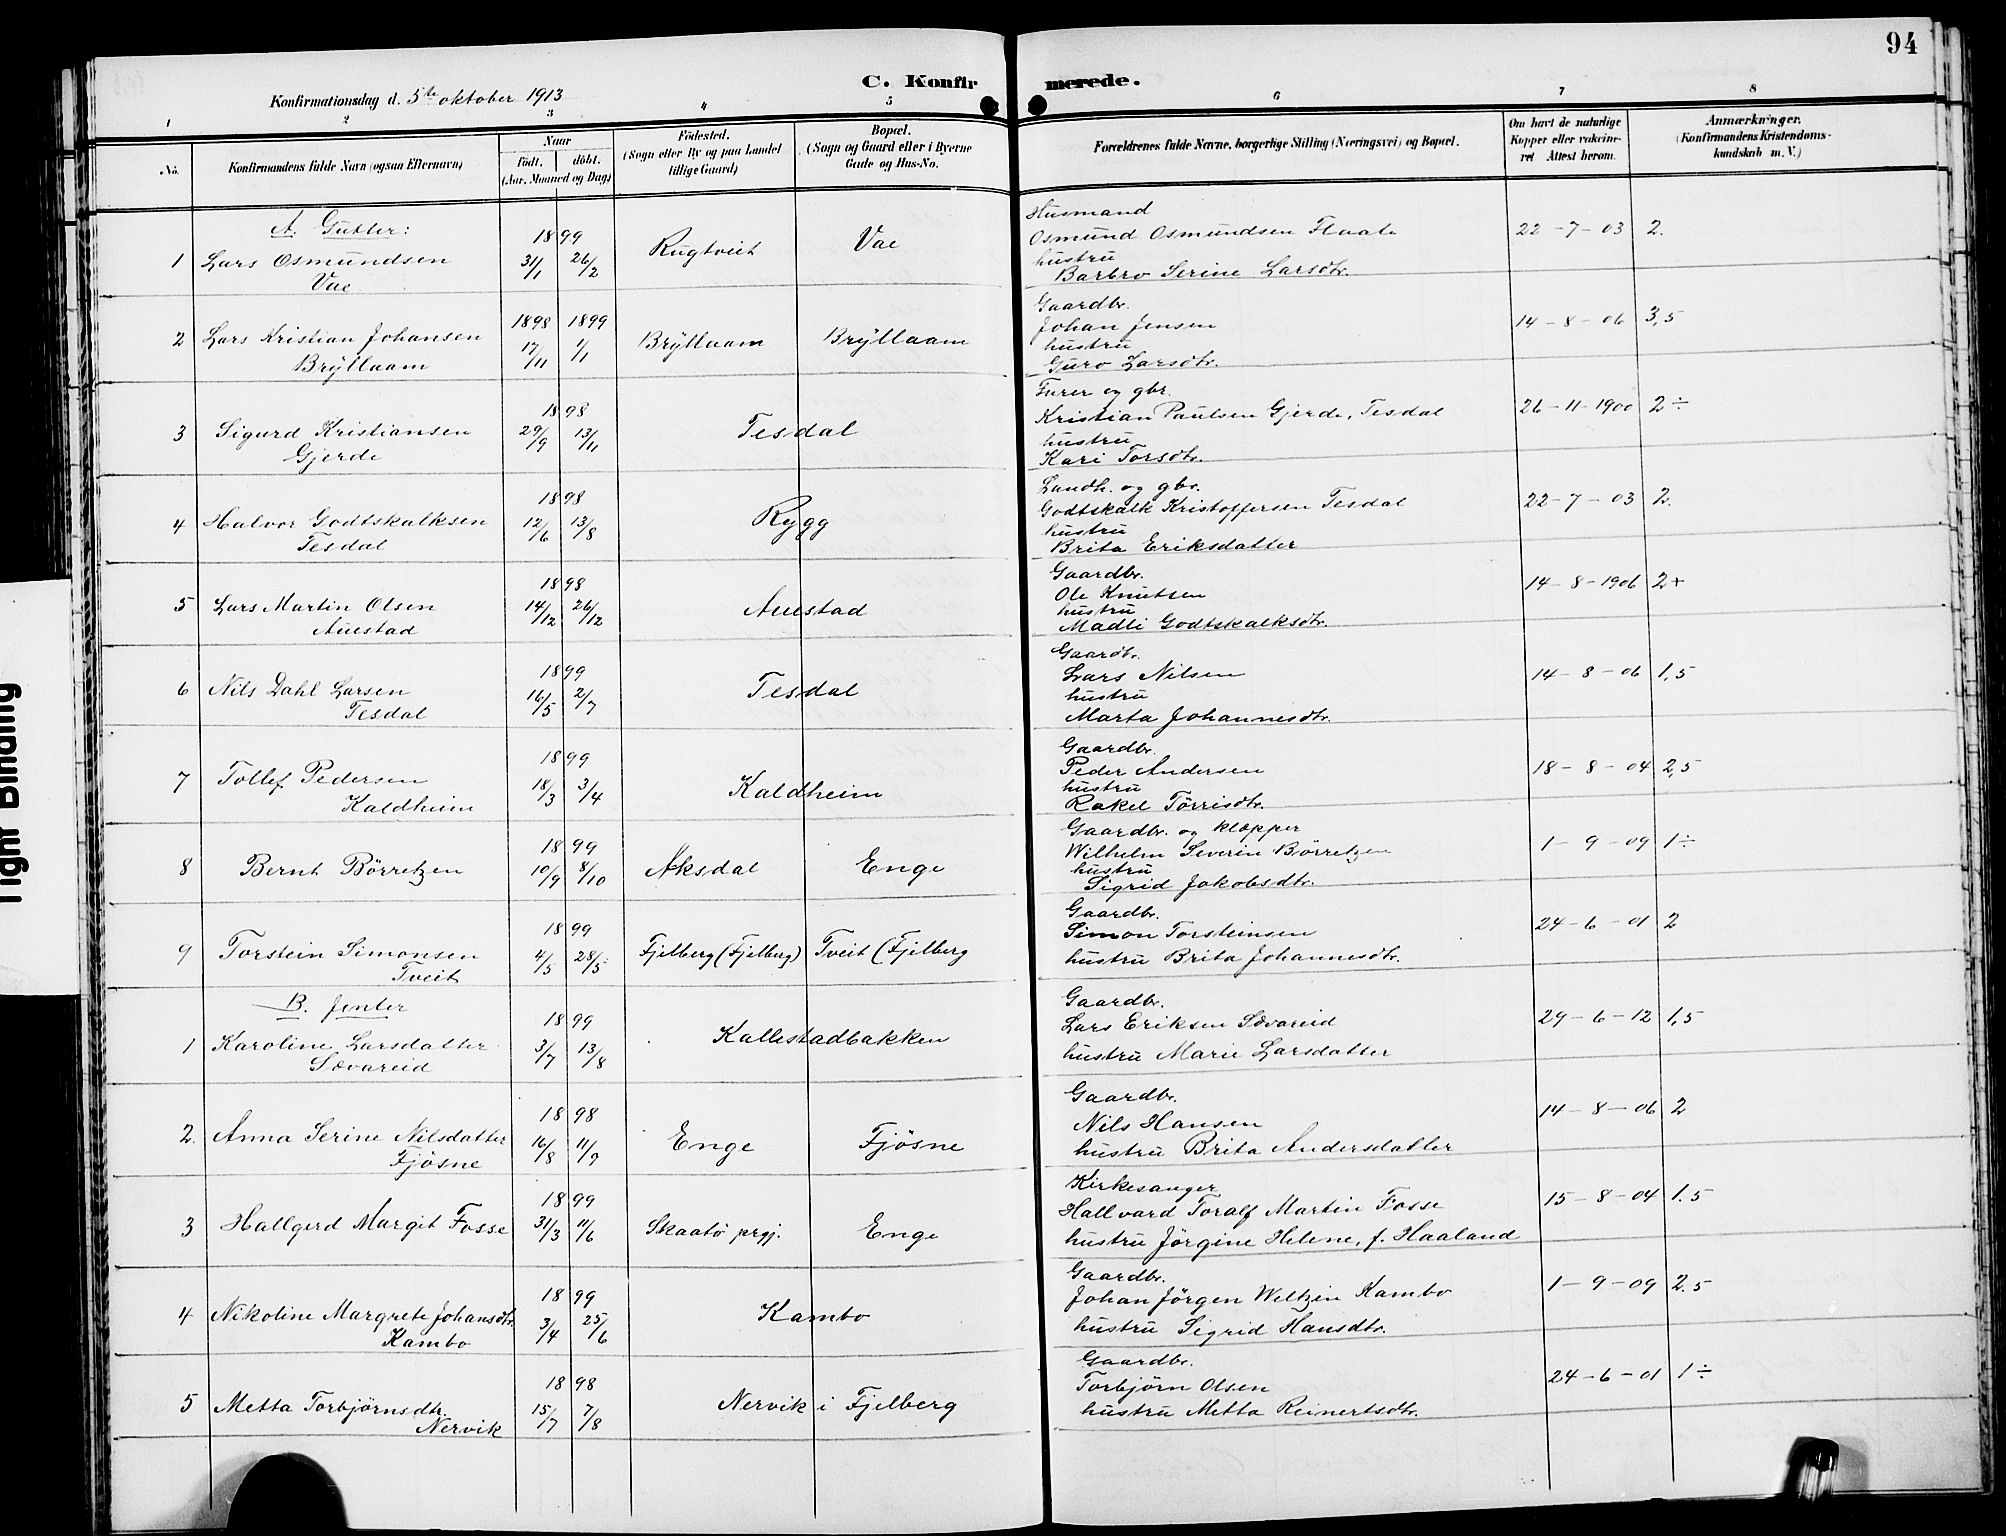 94
C. Konfirmerede.
Konfirmationsdag d. 5te oktober 1913
1 2 3 4 5 6 7 8
No.
Konfirmandens fulde Navn (ogsaa Efternavn)
Naar
födt. döbt.
(Aar, Maaned og Dag)
Födested.
(Sogn eller By og paa Landet
tillige Gaard)
Bopæl.
(Sogn og Gaard eller i Byerne
Gade og Hus-No.
Forældrenes fulde Navne, borgerlige Stilling (Næringsvei) og Bopæl.
Om havt de naturlige
Kopper eller vakcine-
ret Attest herom.
Anmærkninger.
(Konfirmandens Kristendoms-
kundskab m. V.)
A. Gutter:
1 Lars Osmundsen
Vae
1899
31/1 26/2
Rugtveit
Vae
Husmand
Osmund Osmundsen Flaate
hustru
Barbro Serine Larsdtr.
22-7-03 2.
2 Lars Kristian Johansen
Bryllaam
1898 1899
17/11 1/1
Bryllaam
Bryllaam
Gaardbr.
Johan Jensen
hustru
Guro Larsdtr.
14-8-06 3,5
3 Sigurd Kristiansen
Gjerde
1898
29/9 13/11
Tesdal
Furer og gbr.
Kristian Paulsen Gjerde, Tesdal
hustru
Kari Torsdtr.
26-11-1900 2÷
4 Halvor Godtskalksen
Tesdal
1898
12/6 13/8
Rygg
Landh. og gbr.
Godtskalk Kristoffersen Tesdal
hustru
Brita Eriksdatter
22-7-03 2.
5 Lars Martin Olsen
Auestad
1898
14/12 26/12
Auestad
Gaardbr.
Ole Knutsen
hustru
Madli Godtskalksdtr.
14-8-1906 2+
6 Nils Dahl Larsen
Tesdal
1899
16/5 2/7
Tesdal
Gaardbr.
Lars Nilsen
hustru
Marta Johannesdtr.
14-8-06 1,5
7 Tollef Pedersen
Kaldheim
1899
18/3 3/4
Kaldheim
Gaardbr.
Peder Andersen
hustru
Rakel Tørrisdtr.
18-8-04 2,5
8 Bernt Börretzen
1899
10/9 8/10
Aksdal
Enge
Gaardbr. og klopper
Wilhelm Severin Börretzen
hustru
Sigrid Jakobsdtr.
1-9-09 1÷
9 Torstein Simonsen
Tveit
1899
4/5 28/5
Fjelberg (Fjelberg)
Tveit (Fjelberg
Gaardbr.
Simon Torsteinsen
hustru Brita Johannesdtr.
24-6-01 2
B. Jenter
1 Karoline Larsdatter
Sævareid
1899
3/7 13/8
Kallestadbakken
Gaardbr.
Lars Eriksen Sævareid
hustru Marie Larsdatter
29-6-12 1,5
2. Anna Serine Nilsdatter
Fjösne
1898
16/8 11/9
Enge
Fjösne
Gaardbr.
Nils Hansen
hustru Brita Andersdatter
14-8-06 2
3 Hallgerd Margit Fosse
1899
31/3 11/6
Skaatö prgj.
Enge
Kirkesanger
Hallvard Toralf Martin Fosse
hustru Jörgine Helene, f. Haaland
15-8-04 1.5
4 Nikoline Margrete Johansdtr.
Kambo
1899
3/4 25/6
Kambo
Gaardbr.
Johan Jörgen Weltzin Kambo
hustru Sigrid Hansdtr.
1-9-09 2.5
5 Metta Torbjörnsdtr.
Nervik
1898
15/7 7/8
Nervik i Fjelberg
Gaardbr.
Torbjörn Olsen
hustru Metta Reinertsdtr.
24-6-01 1÷
Tight Binding